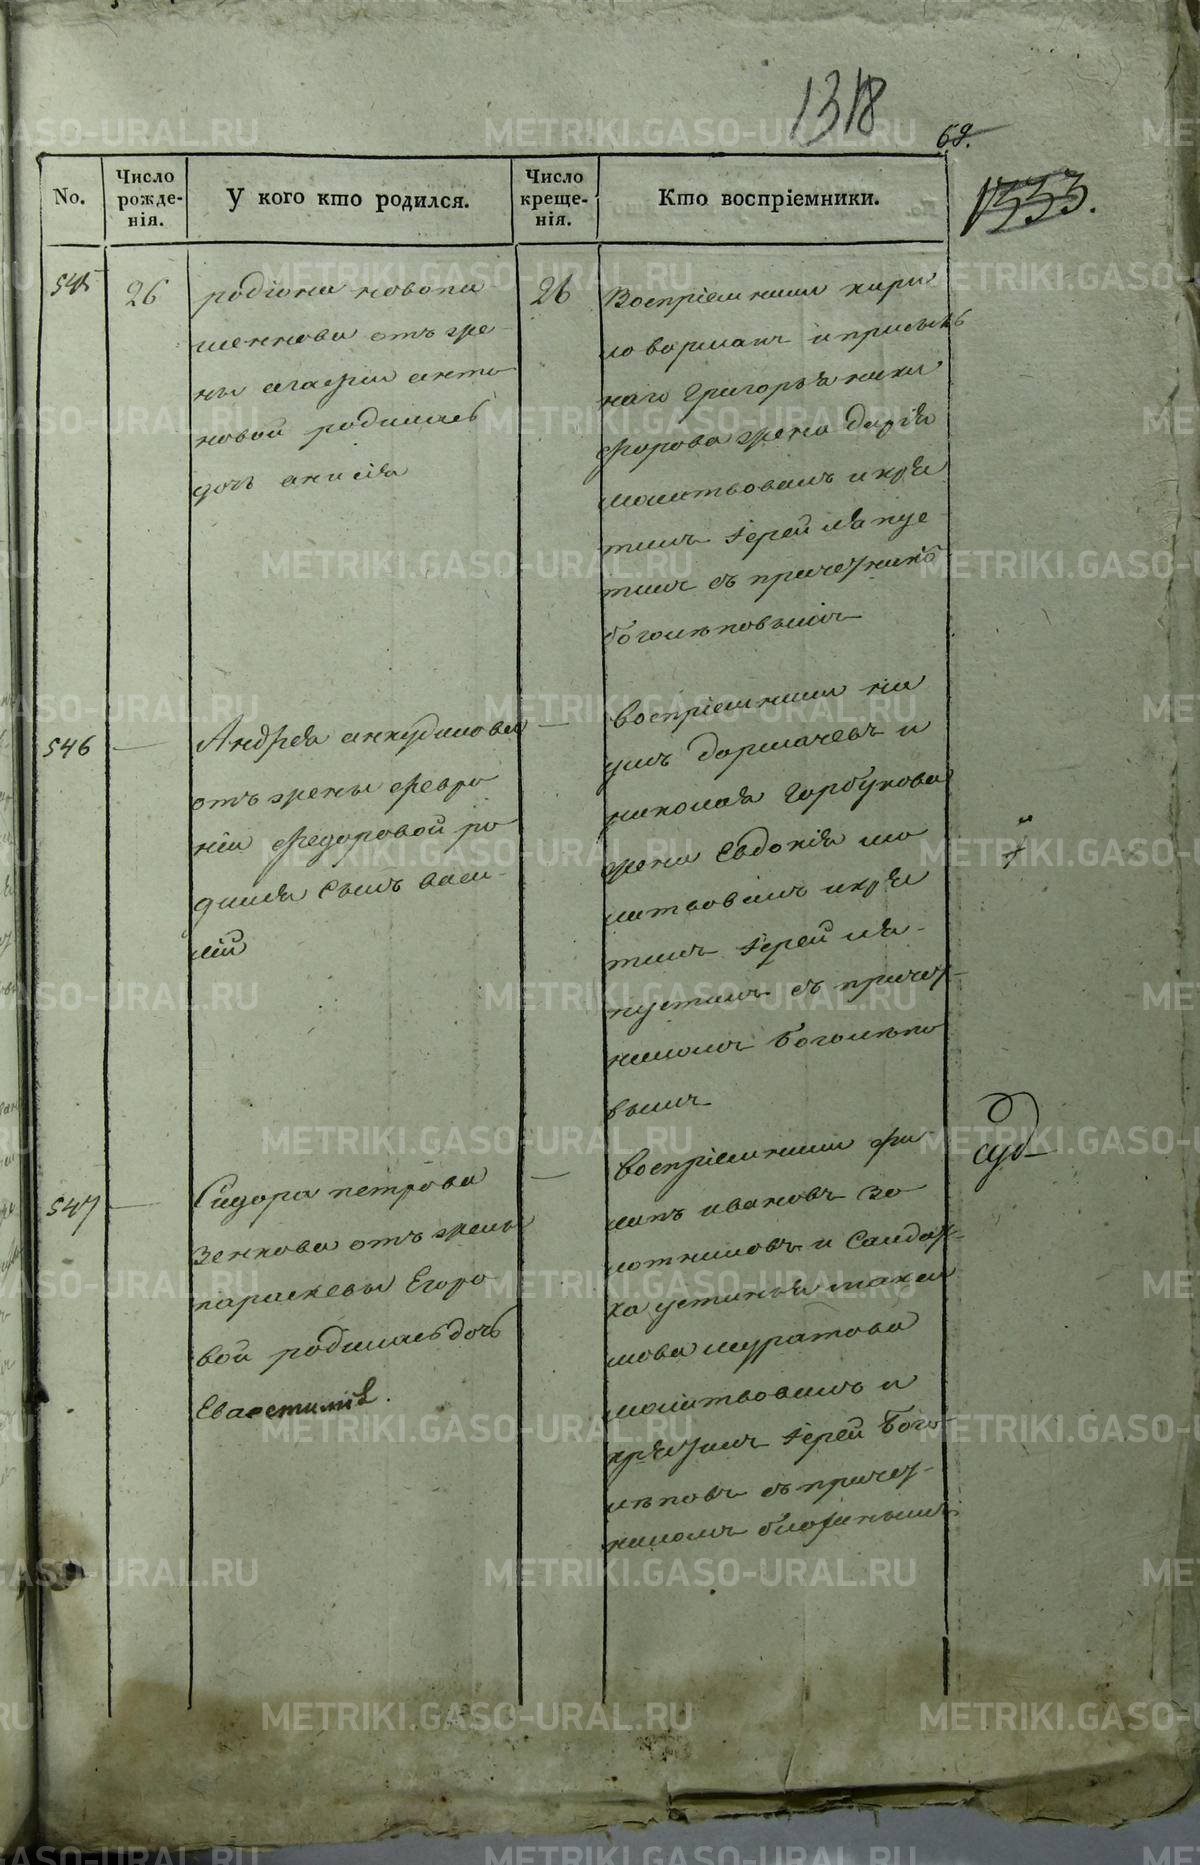 1318
69.
1333.
No.
Число рожде-нія.
У кого кто родился.
Число креще-нія.
Кто воспріемники.
545
26
родіона новопа
шеннова отъ же-
ны агафіи анто
новой родилась
дочь анисія
26
Воспріемники кири
наго Григорья ники
форова жена дарія
молитвовалъ и кре
тилъ Іерей лапу
тинъ съ причетникомъ
боголеповымъ
546
Андрея анкудинова
отъ жены февро
ніи федоровой ро
дился сынъ васи-
лій
воспріемники
николая Горбунова
жена Евдокія мо
литвовалъ и кре
тилъ Іерей ла-
путинъ съ причет-
никомъ Боголепо
вымъ
547
Сидора петрова
Зенкова отъ жены
параскевы Егоро
вой родилась дочь
Евпестилія.
воспріемники фи
липъ ивановъ зо
лотниловъ и Салдат-
ка устинья макси
мова муратова
молитвовалъ и
крестилъ Іерей Бого-
леповъ съ причет-
никомъ
METRIKI.GASO-URAL.RU